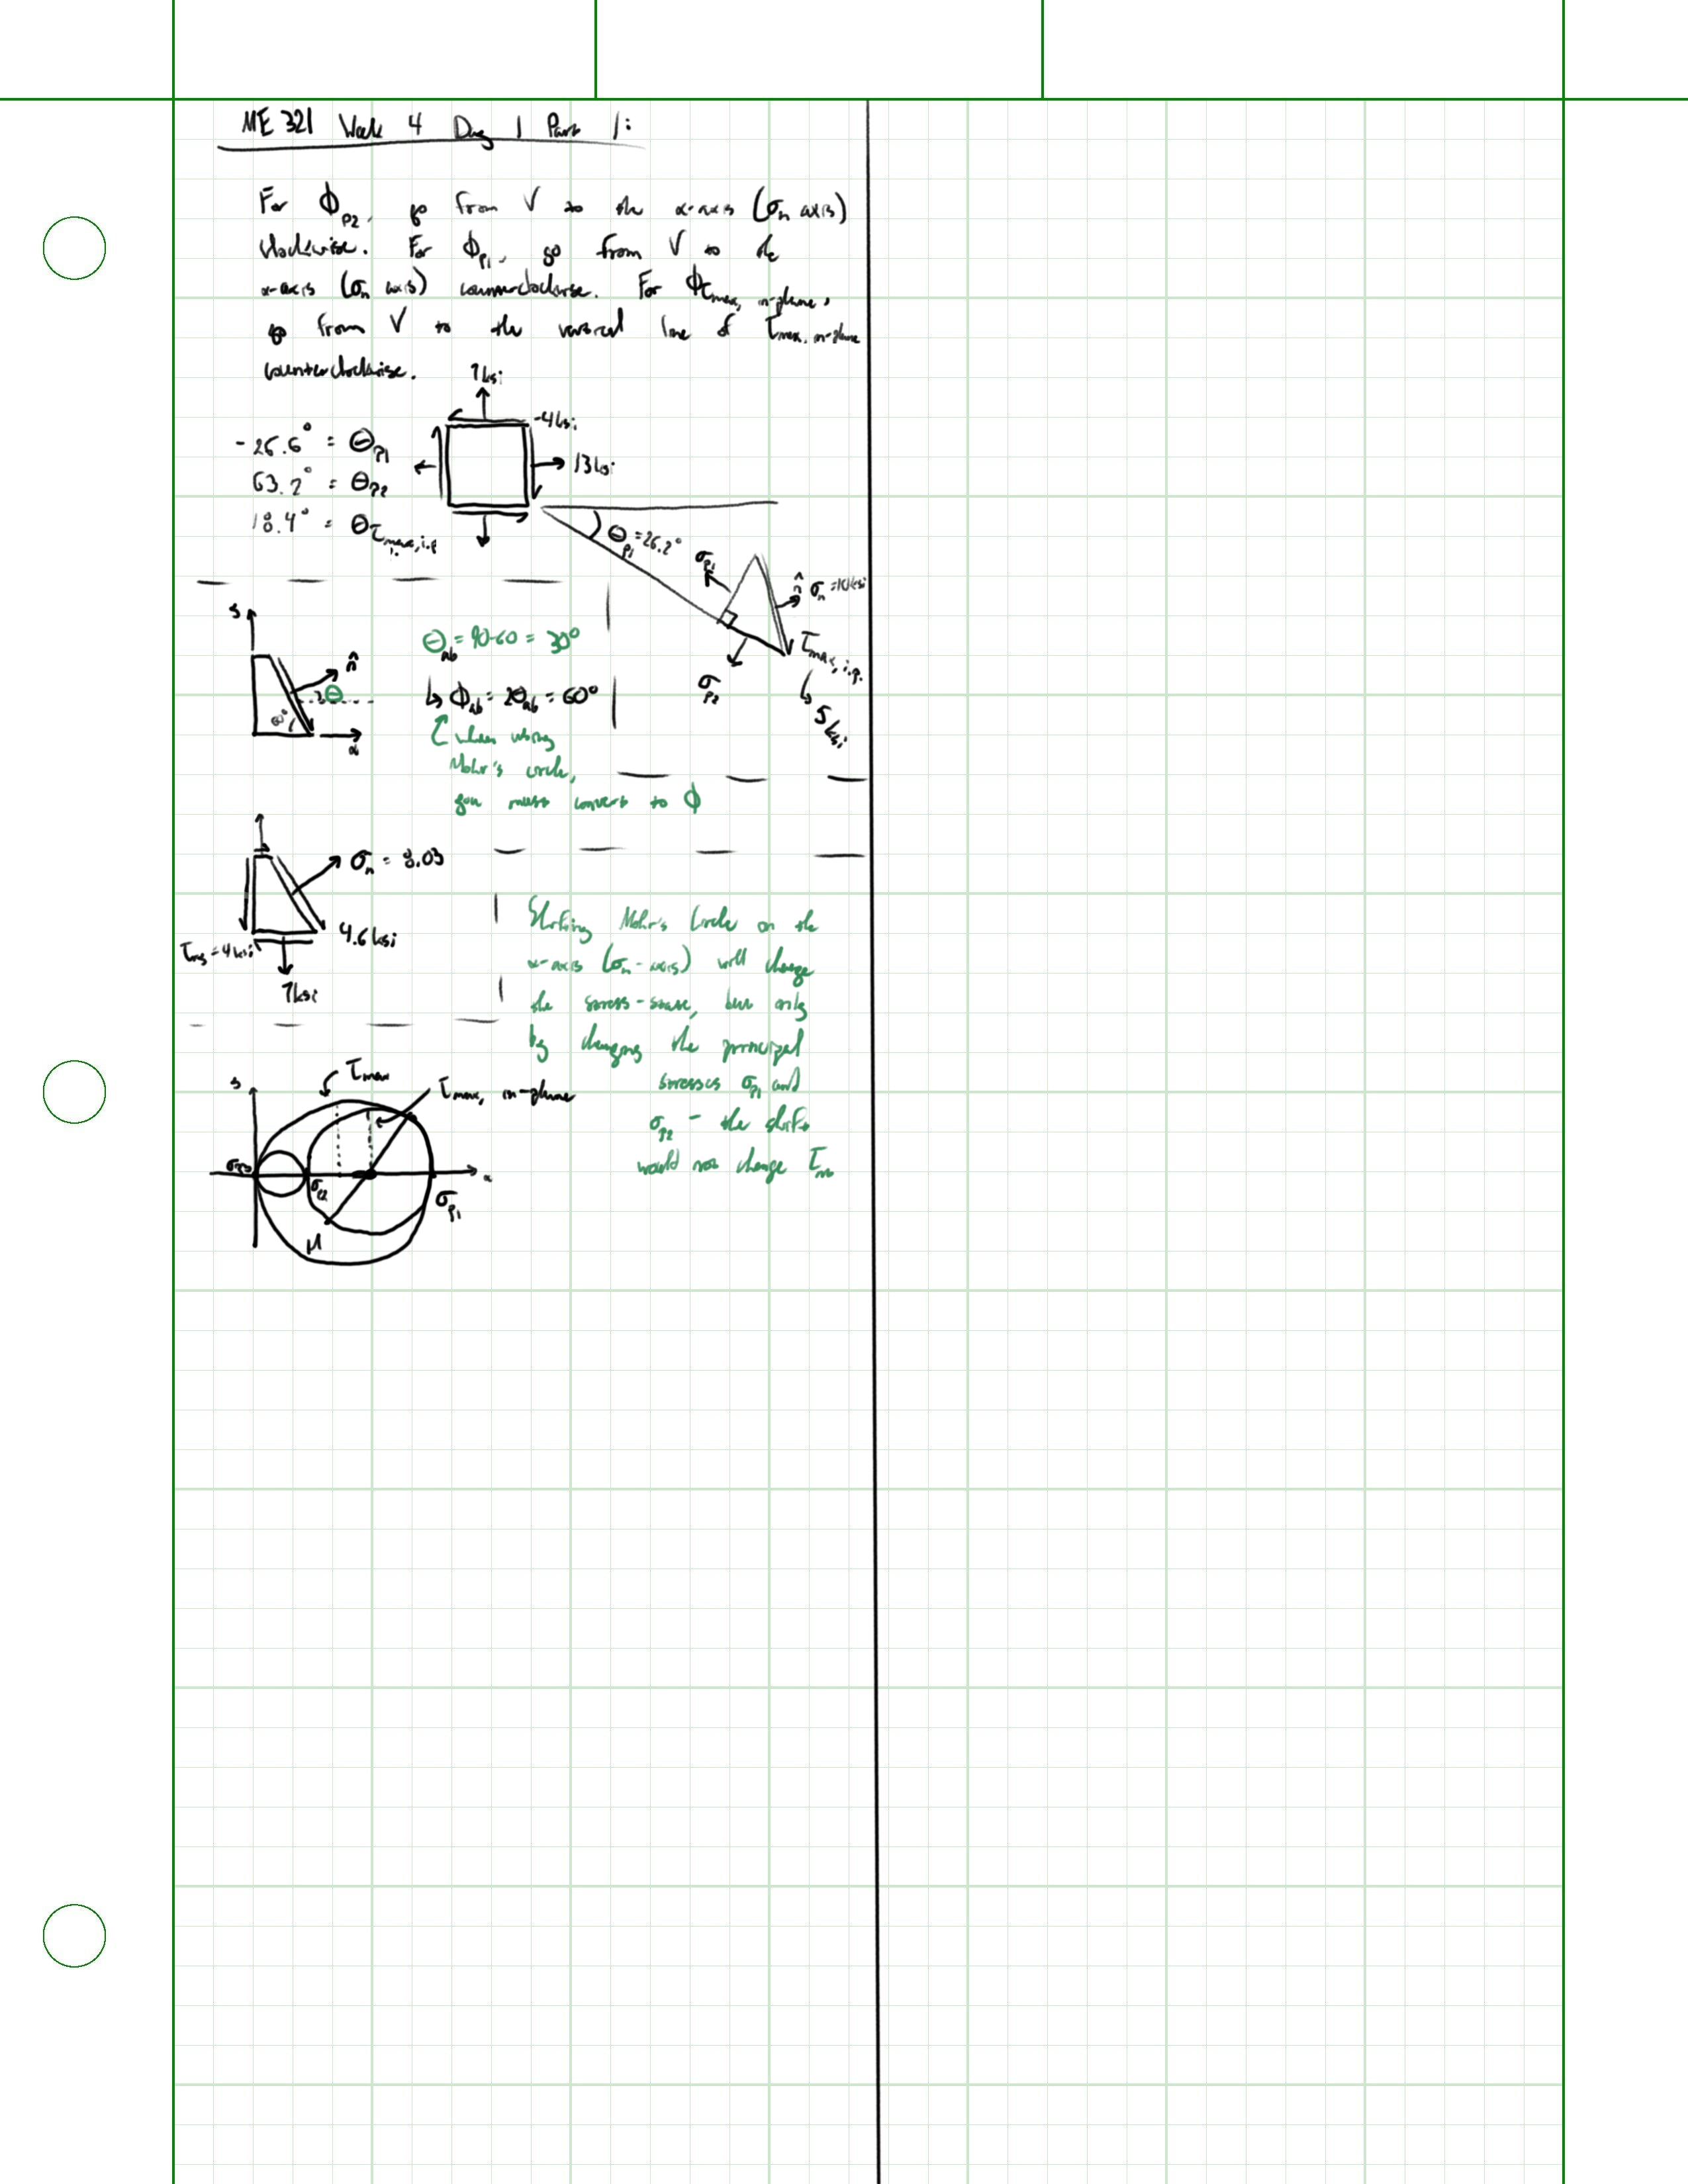 ME 321 Week 4 Day 1 Part 1:
For ϕp2, go from V to the x-axis (σn axis)
clockwise. For ϕp1, go from V to the
x-axis (σn axis) counterclockwise. For ϕτmax, in-plane,
go from V to the vertical line of τmax, in-plane
counterclockwise.
7ksi
-4ksi
13ksi
-26.6° = θp1
63.2° = θp2
18.4° = θτmax, i.p.
θp1 = 26.2°
σp1
n̂ σn = 10ksi
τmax, i.p.
↳ 5 ksi
σp2
s
n̂
θ
60°
x
θab = 90-60 = 30°
↳ ϕab = 2θab = 60°
when using
Mohr's circle,
you must convert to ϕ
σn = 8.03
4.6ksi
τns = 4ksi
7ksi
Shifting Mohr's Circle on the
x-axis (σn-axis) will change
the stress-state, but only
by changing the principal
stresses σp1 and
σp2 - the shift
would not change τm
s
τmax
τmax, in-plane
σp3
σp2
σp1
x
H